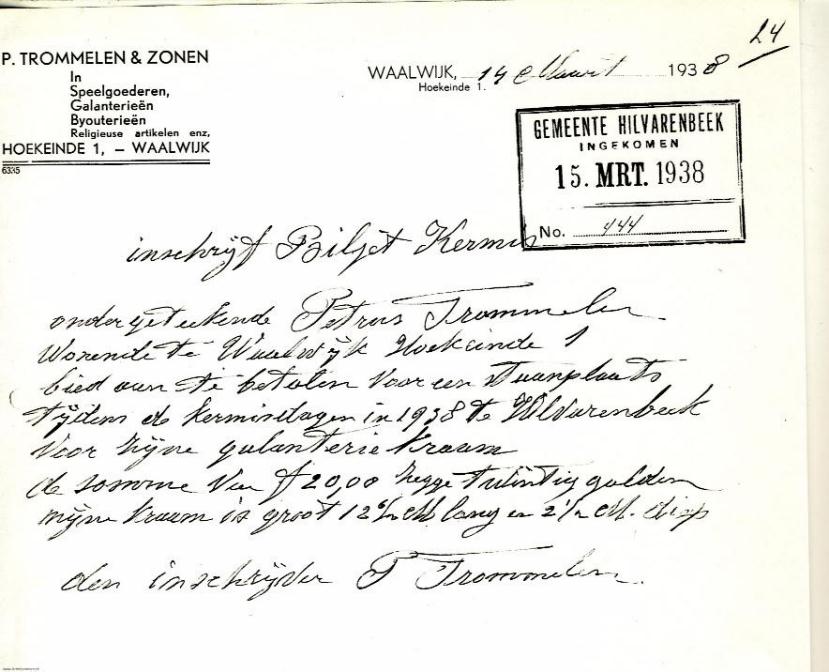 24
P. TROMMELEN & ZONEN
In
Speelgoederen,
Galanterieën
Byouterieën
Religieuse artikelen enz,
HOEKEINDE 1, — WAALWIJK
6335
WAALWIJK, 14 Maart 1938
Hoekeinde 1.
GEMEENTE HILVARENBEEK
INGEKOMEN
15. MRT. 1938
No. 444
inschrijf Biljet Kermis
ondergeteekende Petrus Trommelen
Wonende te Waalwijk Hoekeinde 1
bied aan te betalen voor een staanplaats
tijdens de kermisdagen in 1938 te Hilvarenbeek
voor zijne galanterie kraam
de somme van f 20,00 zegge twintig gulden
mijne kraam is groot 12 1/2 M lang en 2 1/2 M. diep
den inschrijver P Trommelen.